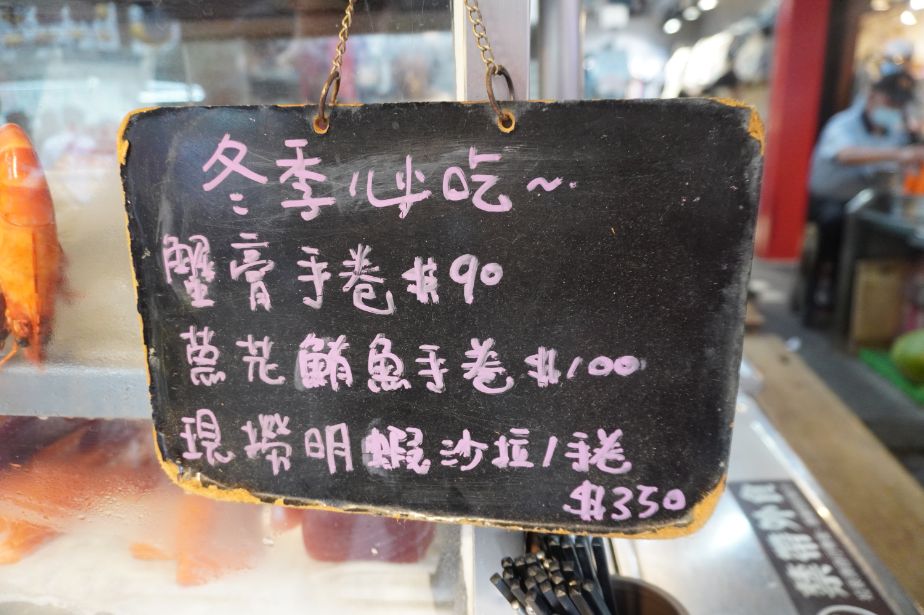 冬季必吃~
蟹膏手卷$90
蔥花鮪魚手卷$100
現撈明蝦沙拉/手卷
$350
禁帶外食